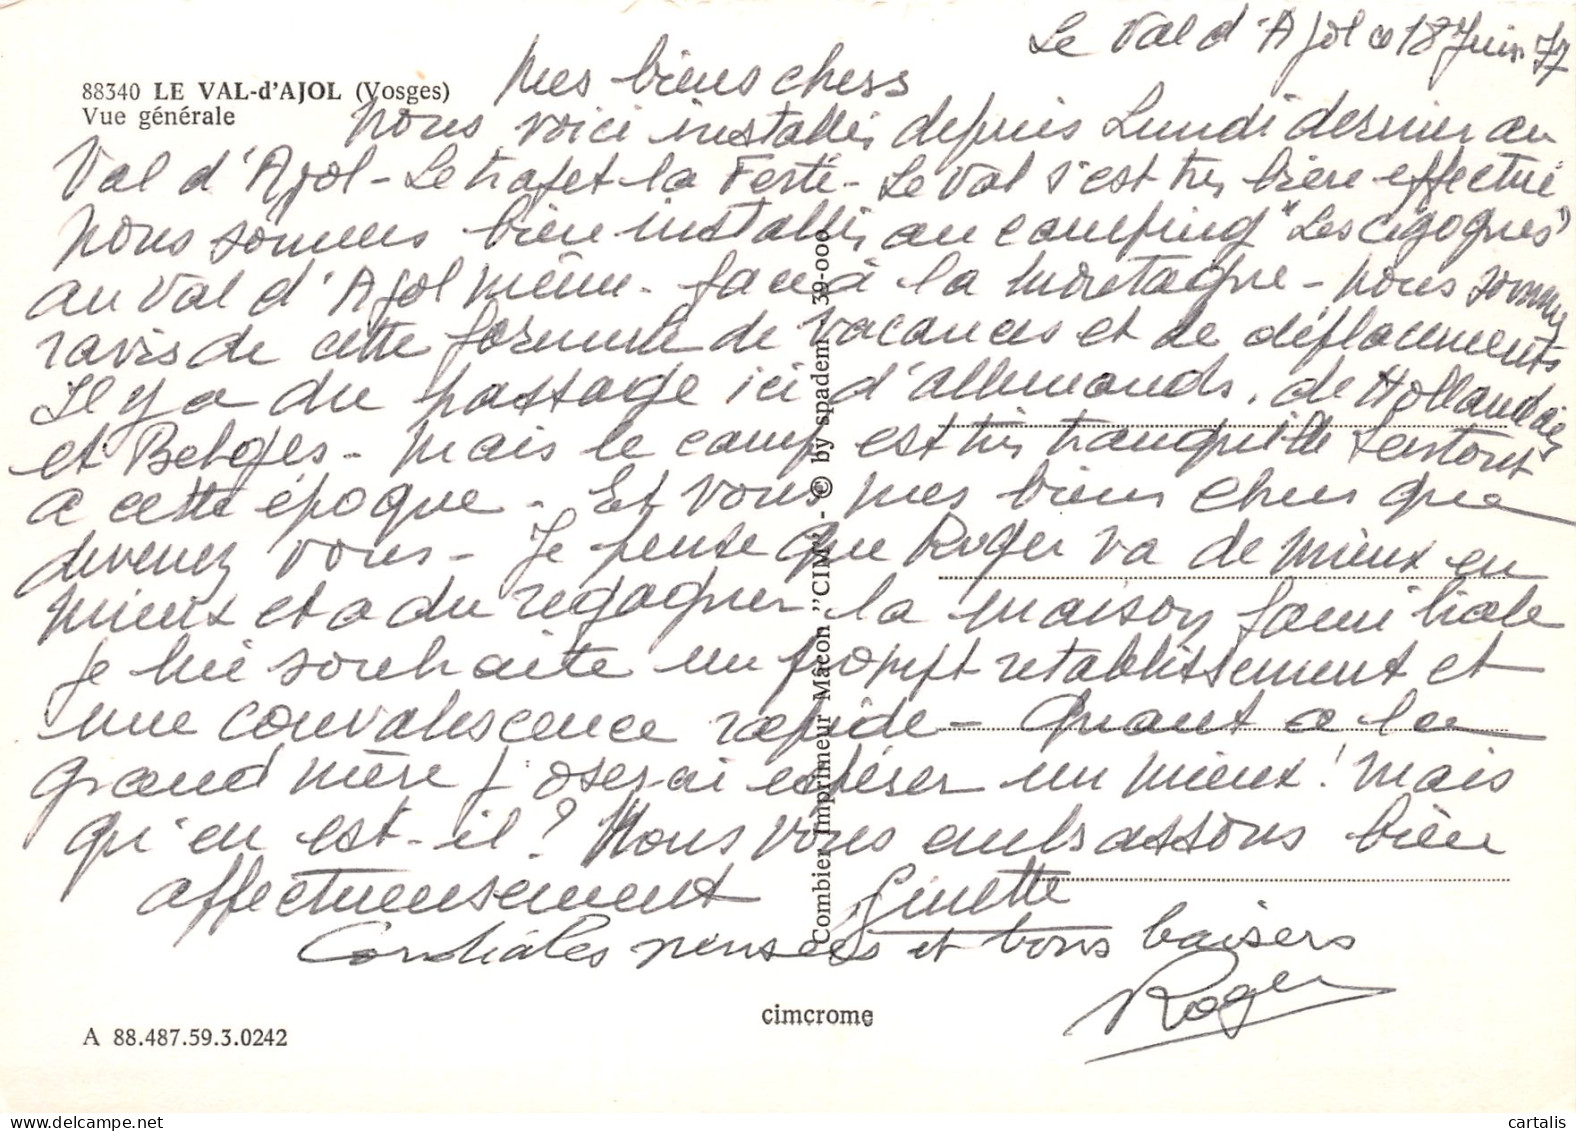 Le Val d'Ajol ce 18 Juin 77
88340 LE VAL-d'AJOL (Vosges)
Vue générale
Mes biens chers
Nous voici installés depuis Lundi dernier au
Val d'Ajol - Le trajet la Ferté - Le Val s'est très bien effectué
Nous sommes bien installés au camping "Les Cigognes"
au Val d'Ajol même - face à la montagne - Nous sommes
ravis de cette formule de vacances et de déplacements
Il y a du passage ici d'allemands, de Hollandais
et Belges - Mais le camp est très tranquille surtout
a cette époque - Et vous mes biens chers que
devenez vous - Je pense que Roger va de mieux en
mieux et a du regagner la maison familiale
Je lui souhaite un prompt retablissement et
une convalescence rapide - Quant a la
grand mère j'oserai espérer un mieux! Mais
qu'en est-il? Nous vous embrassons bien
affectueusement Ginette
Cordiales pensées et bons baisers
Roger
Combier Imprimeur Mâcon "CIM" - © by spadem 39-000
cimcrome
A 88.487.59.3.0242
cartalis